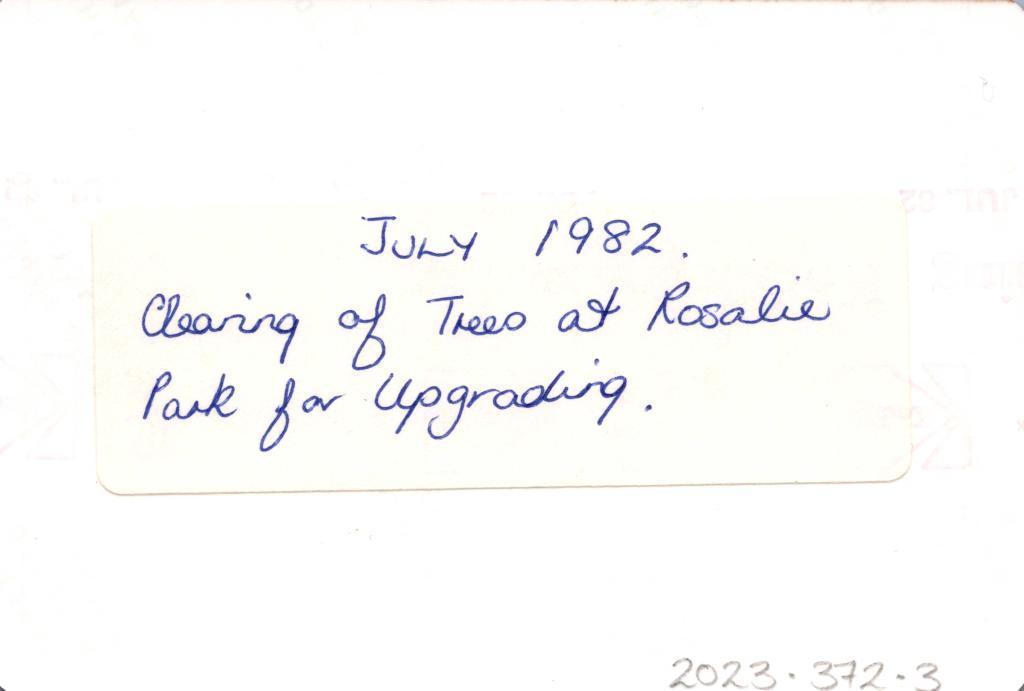 JULY 1982.
Clearing of Trees at Rosalie
Park for Upgrading.
2023.372.3